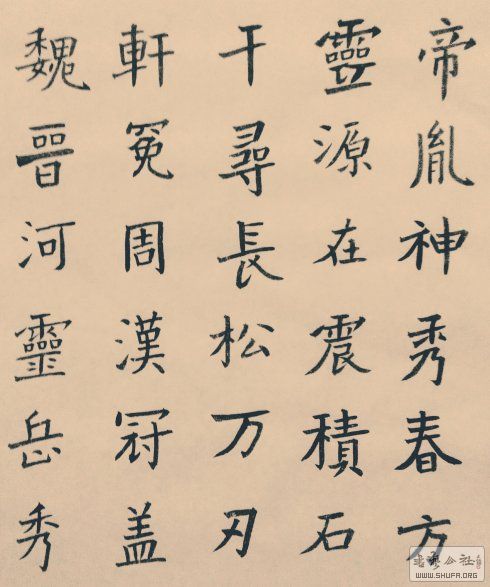 帝胤神秀春方
靈源在震積石
千尋長松万刃
軒冕周漢冠盖
魏晉河靈岳秀
書法公社
WWW.SHUFA.ORG